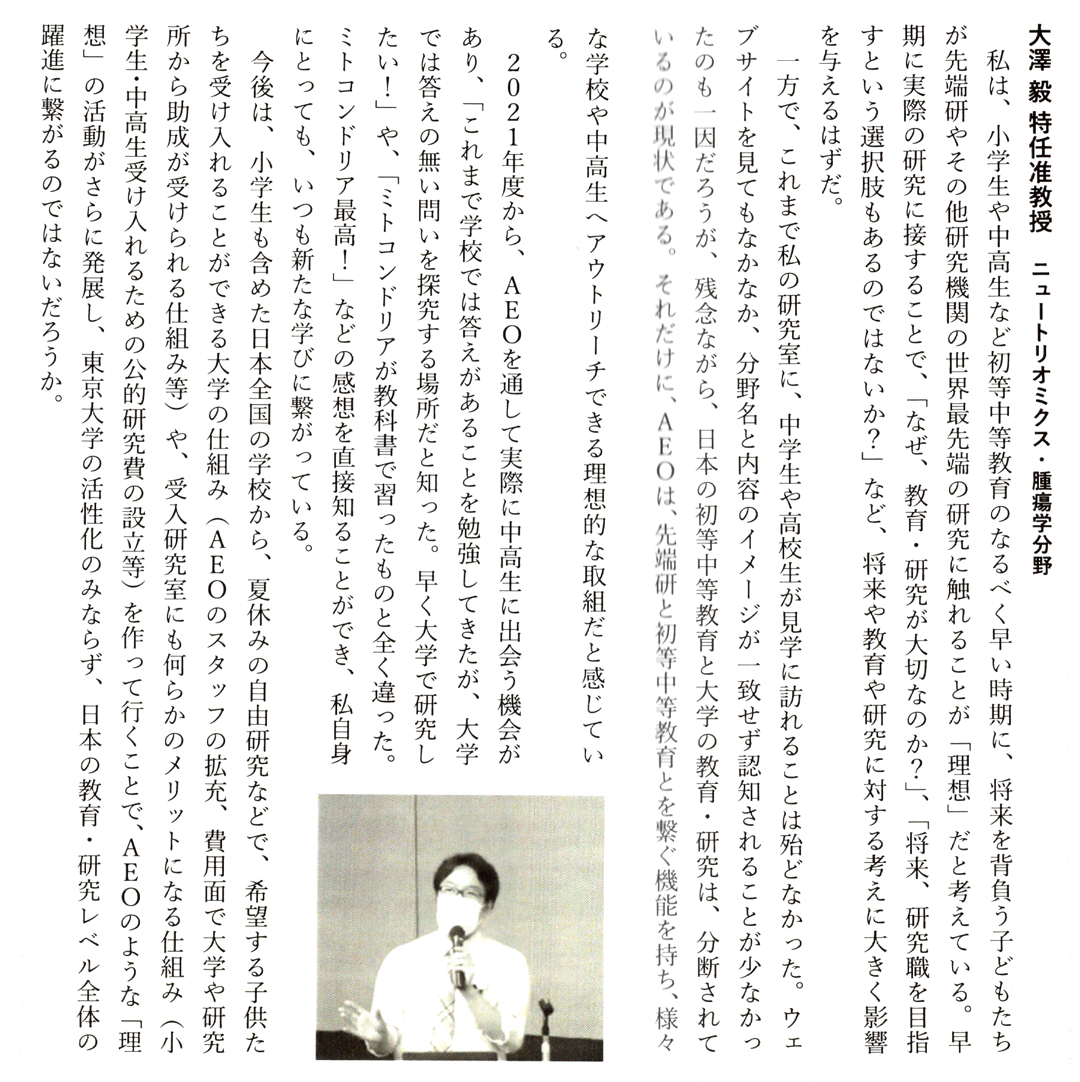 大澤 毅 特任准教授　ニュートリオミクス・腫瘍学分野
　私は、小学生や中高生など初等中等教育のなるべく早い時期に、将来を背負う子どもたち
が先端研やその他研究機関の世界最先端の研究に触れることが「理想」だと考えている。早
期に実際の研究に接することで、「なぜ、教育・研究が大切なのか？」、「将来、研究職を目指
すという選択肢もあるのではないか？」など、将来や教育や研究に対する考えに大きく影響
を与えるはずだ。
　一方で、これまで私の研究室に、中学生や高校生が見学に訪れることは殆どなかった。ウェ
ブサイトを見てもなかなか、分野名と内容のイメージが一致せず認知されることが少なかっ
たのも一因だろうが、残念ながら、日本の初等中等教育と大学の教育・研究は、分断されて
いるのが現状である。それだけに、ＡＥＯは、先端研と初等中等教育とを繋ぐ機能を持ち、様々
な学校や中高生へアウトリーチできる理想的な取組だと感じてい
る。
　２０２１年度から、ＡＥＯを通して実際に中高生に出会う機会が
あり、「これまで学校では答えがあることを勉強してきたが、大学
では答えの無い問いを探究する場所だと知った。早く大学で研究し
たい！」や、「ミトコンドリアが教科書で習ったものと全く違った。
ミトコンドリア最高！」などの感想を直接知ることができ、私自身
にとっても、いつも新たな学びに繋がっている。
　今後は、小学生も含めた日本全国の学校から、夏休みの自由研究などで、希望する子供た
ちを受け入れることができる大学の仕組み（ＡＥＯのスタッフの拡充、費用面で大学や研究
所から助成が受けられる仕組み等）や、受入研究室にも何らかのメリットになる仕組み（小
学生・中高生受け入れるための公的研究費の設立等）を作って行くことで、ＡＥＯのような「理
想」の活動がさらに発展し、東京大学の活性化のみならず、日本の教育・研究レベル全体の
躍進に繋がるのではないだろうか。